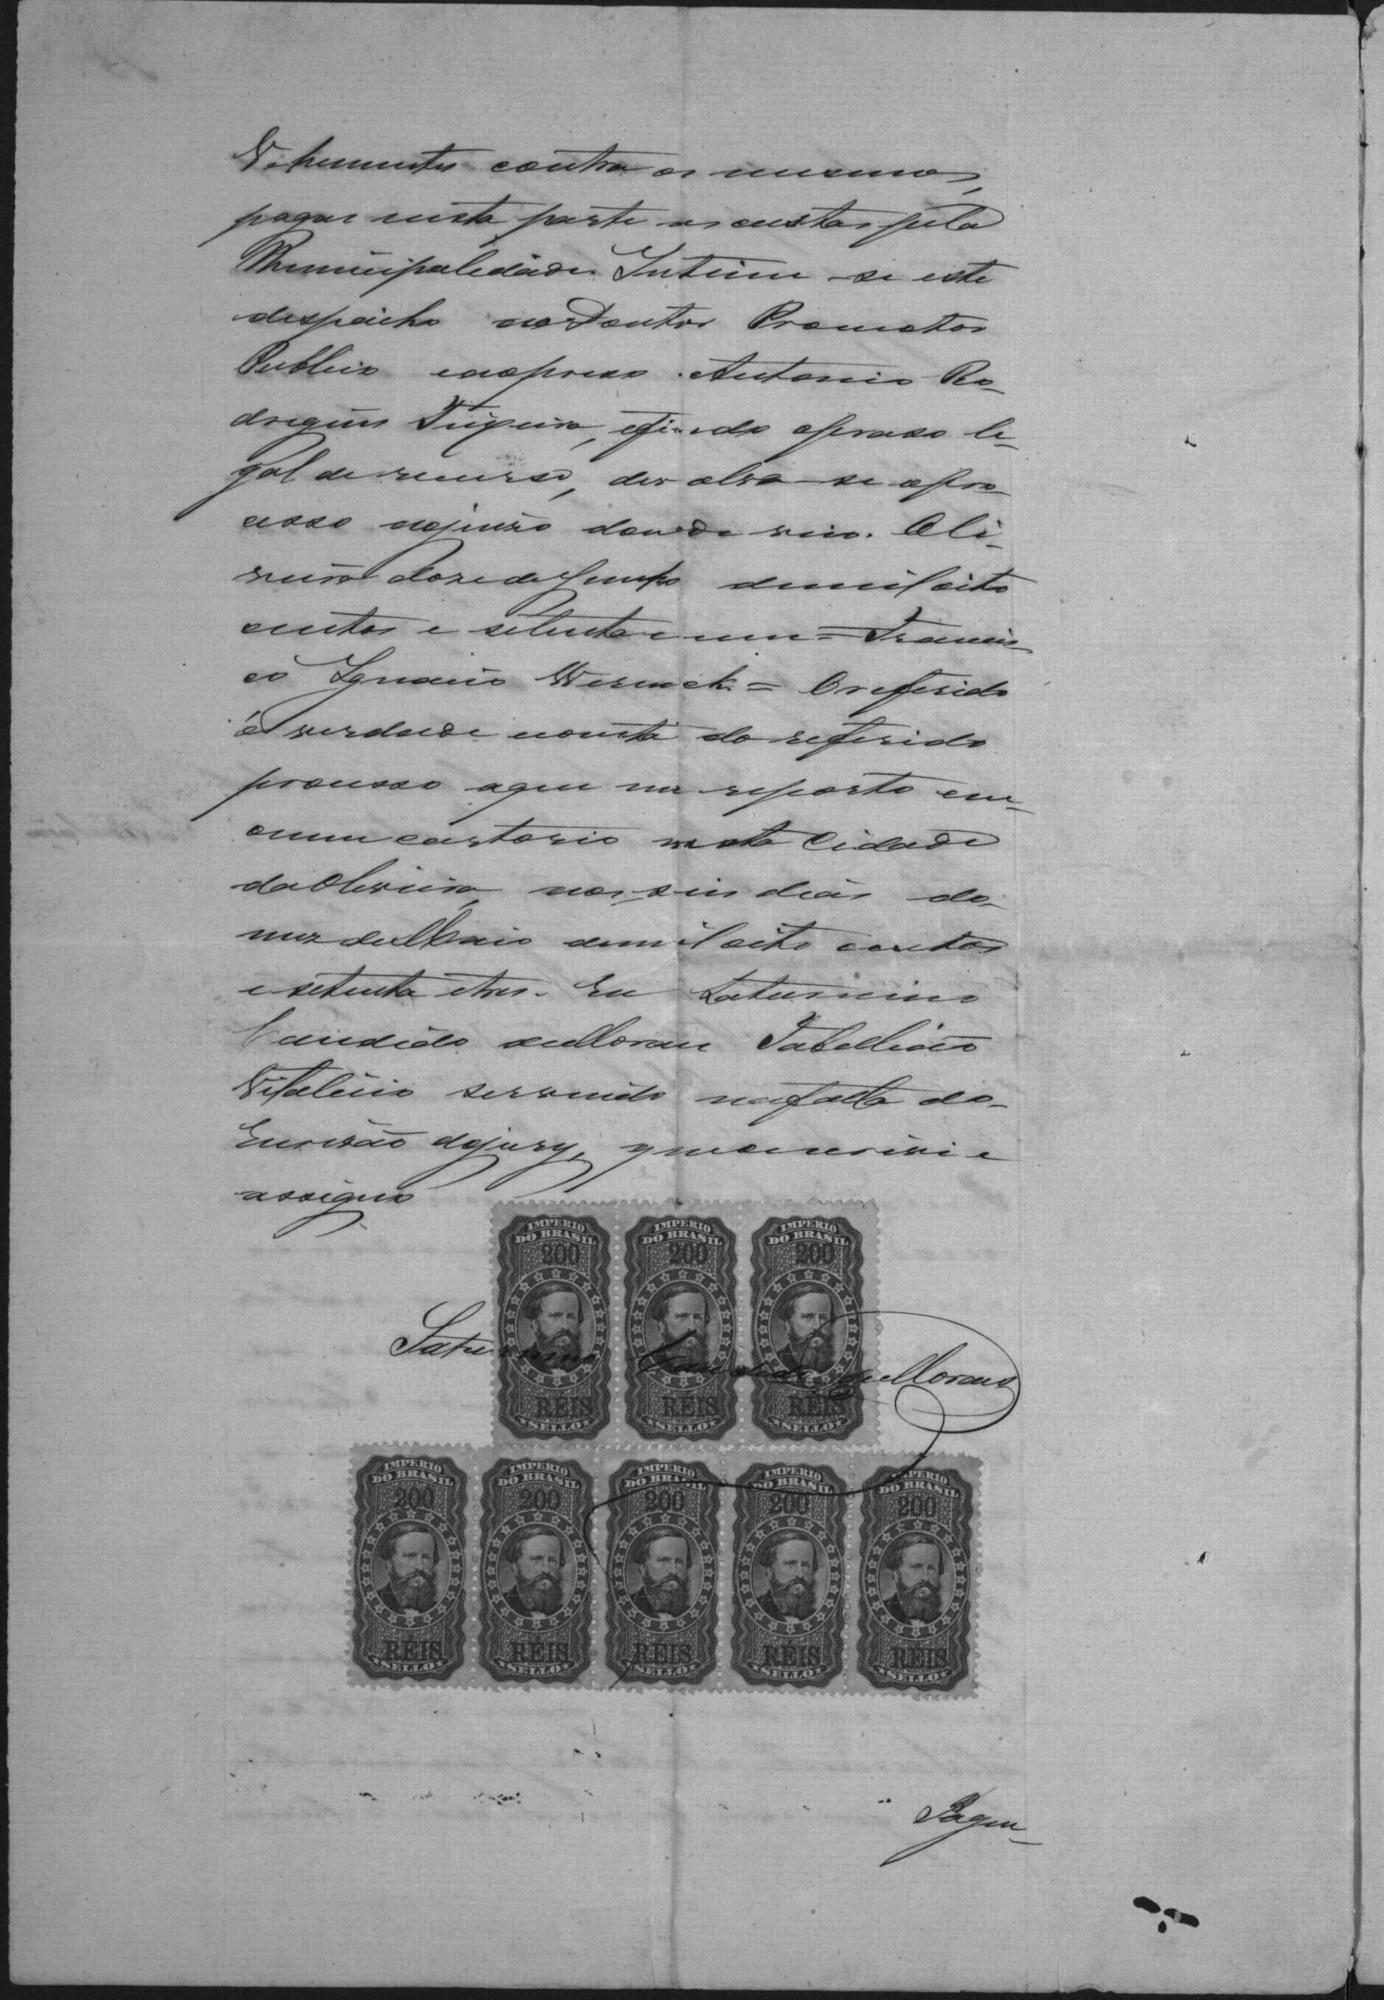 Vehementes contra os mesmos,
pagas nesta parte as custas pela
Municipalidade. Intime-se este
despacho ao Doutor Promotor
Publico eaopreso Antonio Ro-
drigues Teixeira, efindo opraso le-
gal de recurso, devolva-se opro-
cesso aojuizo donde veio. Oli-
veira doze de Junho demil oito
centos e setenta e um = Francis-
co Ignacio Werneck = O referido
é verdade consta do referido
processo aque me reporto em
omeu cartorio nesta Cidade
da Oliveira, aos seis dias do
mez deMaio demil oito centos
e setenta etres. Eu Saturnino
Candido deMoraes Tabellião
Vitalicio servindo nafalta do
Escrivão dojury, queoescrivi e
assigno
IMPERIO DO BRASIL 200 RÉIS SELLO
IMPERIO DO BRASIL 200 RÉIS SELLO
IMPERIO DO BRASIL 200 RÉIS SELLO
Saturnino Candido deMoraes
IMPERIO DO BRASIL 200 RÉIS SELLO
IMPERIO DO BRASIL 200 RÉIS SELLO
IMPERIO DO BRASIL 200 RÉIS SELLO
IMPERIO DO BRASIL 200 RÉIS SELLO
IMPERIO DO BRASIL 200 RÉIS SELLO
Pagou